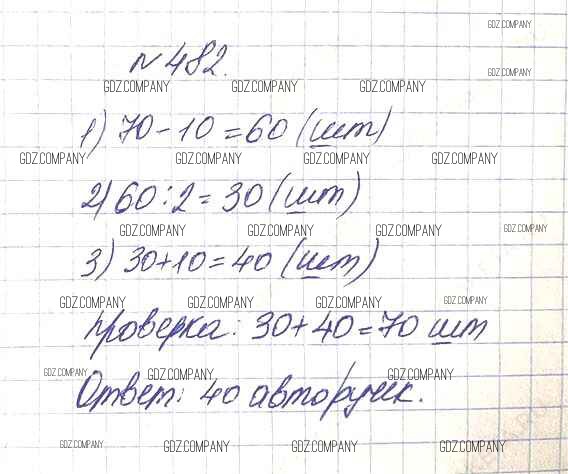 GDZ.COMPANY
№ 482.
GDZ.COMPANY
GDZ.COMPANY GDZ.COMPANY GDZ.COMPANY
1) 70-10=60 (шт)
GDZ.COMPANY GDZ.COMPANY GDZ.COMPANY GDZ.COMPANY
2) 60:2=30 (шт)
GDZ.COMPANY GDZ.COMPANY GDZ.COMPANY GDZ.COMPANY
3) 30+10=40 (шт)
GDZ.COMPANY GDZ.COMPANY GDZ.COMPANY GDZ.COMPANY
Проверка: 30+40=70 шт
GDZ.COMPANY GDZ.COMPANY GDZ.COMPANY
Ответ: 40 авторучек.
GDZ.COMPANY GDZ.COMPANY GDZ.COMPANY GDZ.COMPANY